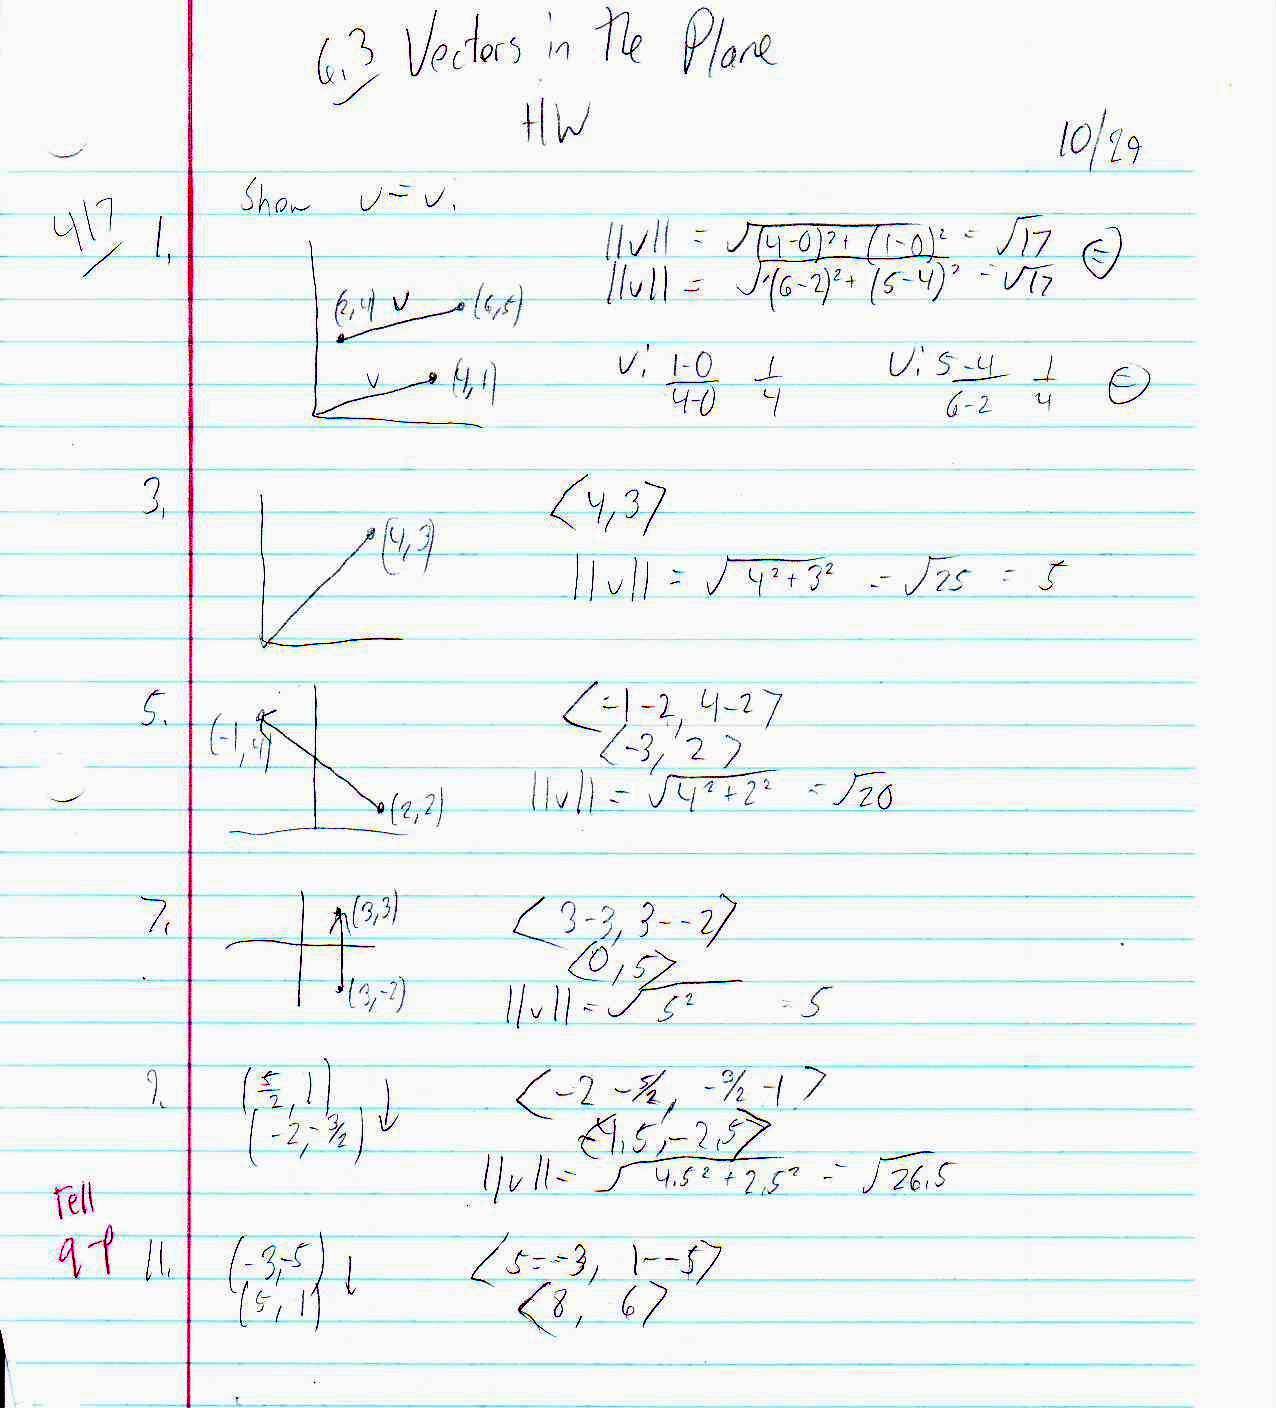 6.3 Vectors in the Plane
HW
10/29
417
Show u = v.
1.
||v|| = √(4-0)² + (1-0)² = √17 (=)
||v|| = √(6-2)² + (5-4)² = √17
(2,4) v (6,5)
v (4,1)
v: 1-0/4-0 1/4 U: 5-4/6-2 1/4 (=)
3. (4,3) <4,3>
||v|| = √4²+3² = √25 = 5
5. (-1,4) (2,2) <-1-2, 4-2>
<-3, 2>
||v|| = √4²+2² = √20
7. (3,3) (3,-2) <3-3, 3--2>
<0, 5>
||v|| = √5² = 5
9. (5/2, 1) <-2-5/2, -3/2-1>
(-2, -3/2) ↓ <-4.5, -2.5>
||v|| = √4.5²+2.5² = √26.5
11. (-3,-5) ↓ <5--3, 1--5>
(5, 1) <8, 6>